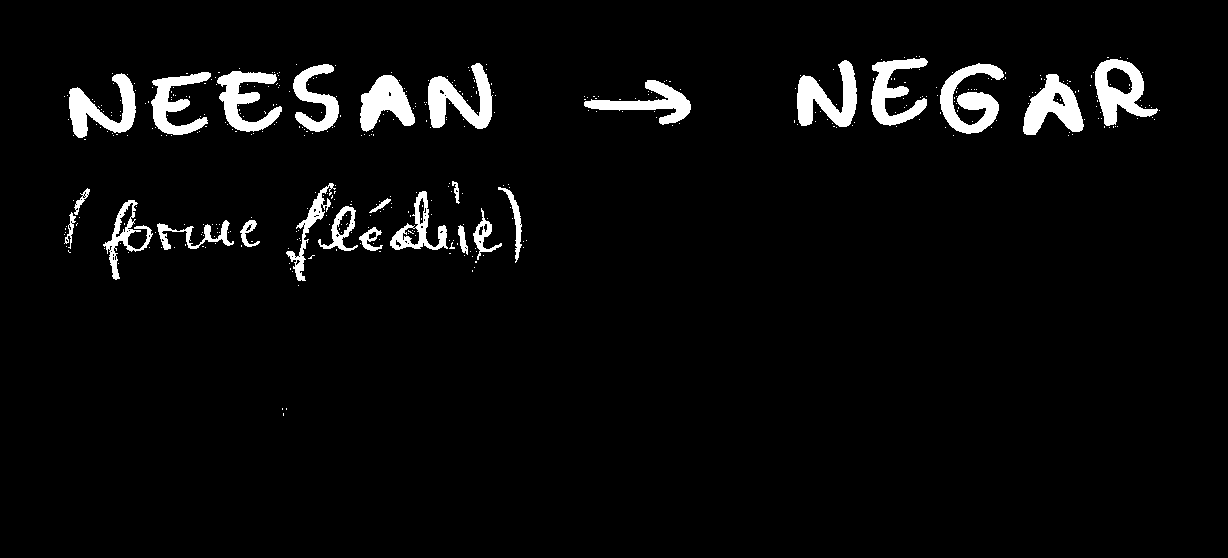 NEESAN → NEGAR
(forme fléchie)